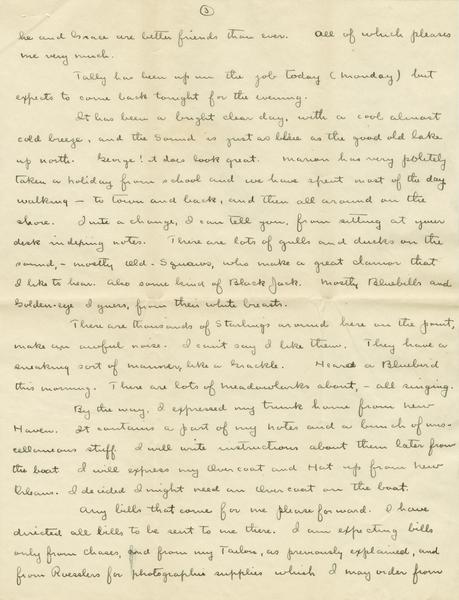 3
he and Grace are better friends than ever. All of which pleases
me very much.
Tally has been up on the job today (Monday) but
expects to come back tonight for the evening.
It has been a bright clear day, with a cool almost
cold breeze, and the Sound is just as blue as the good old lake
up north. George! it does look great. Marion has very politely
taken a holiday from school and we have spent most of the day
walking - to town and back, and then all around on the
shore. Quite a change, I can tell you, from sitting at your
desk indexing notes. There are lots of gulls and ducks on the
sound, - mostly Old-Squaws, who make a great clamor that
I like to hear. Also some kind of Black Jack. Mostly Bluebills and
Golden-eye I guess, from their white breasts.
There are thousands of Starlings around here on the point,
make an awful noise. I can't say I like them. They have a
sneaking sort of manner, like a Grackle. Heard a Bluebird
this morning. There are lots of meadowlarks about, - all singing.
By the way, I expressed my trunk home from New
Haven. It contains a part of my notes and a bunch of mis-
cellaneous stuff. I will write instructions about them later from
the boat. I will express my Overcoat and Hat up from New
Orleans. I decided I might need an Overcoat on the boat.
Any bills that come for me please forward. I have
directed all bills to be sent to me there. I am expecting bills
only from Chases, and from my Tailor, as previously explained, and
from Roesslers for photographic supplies which I may order from